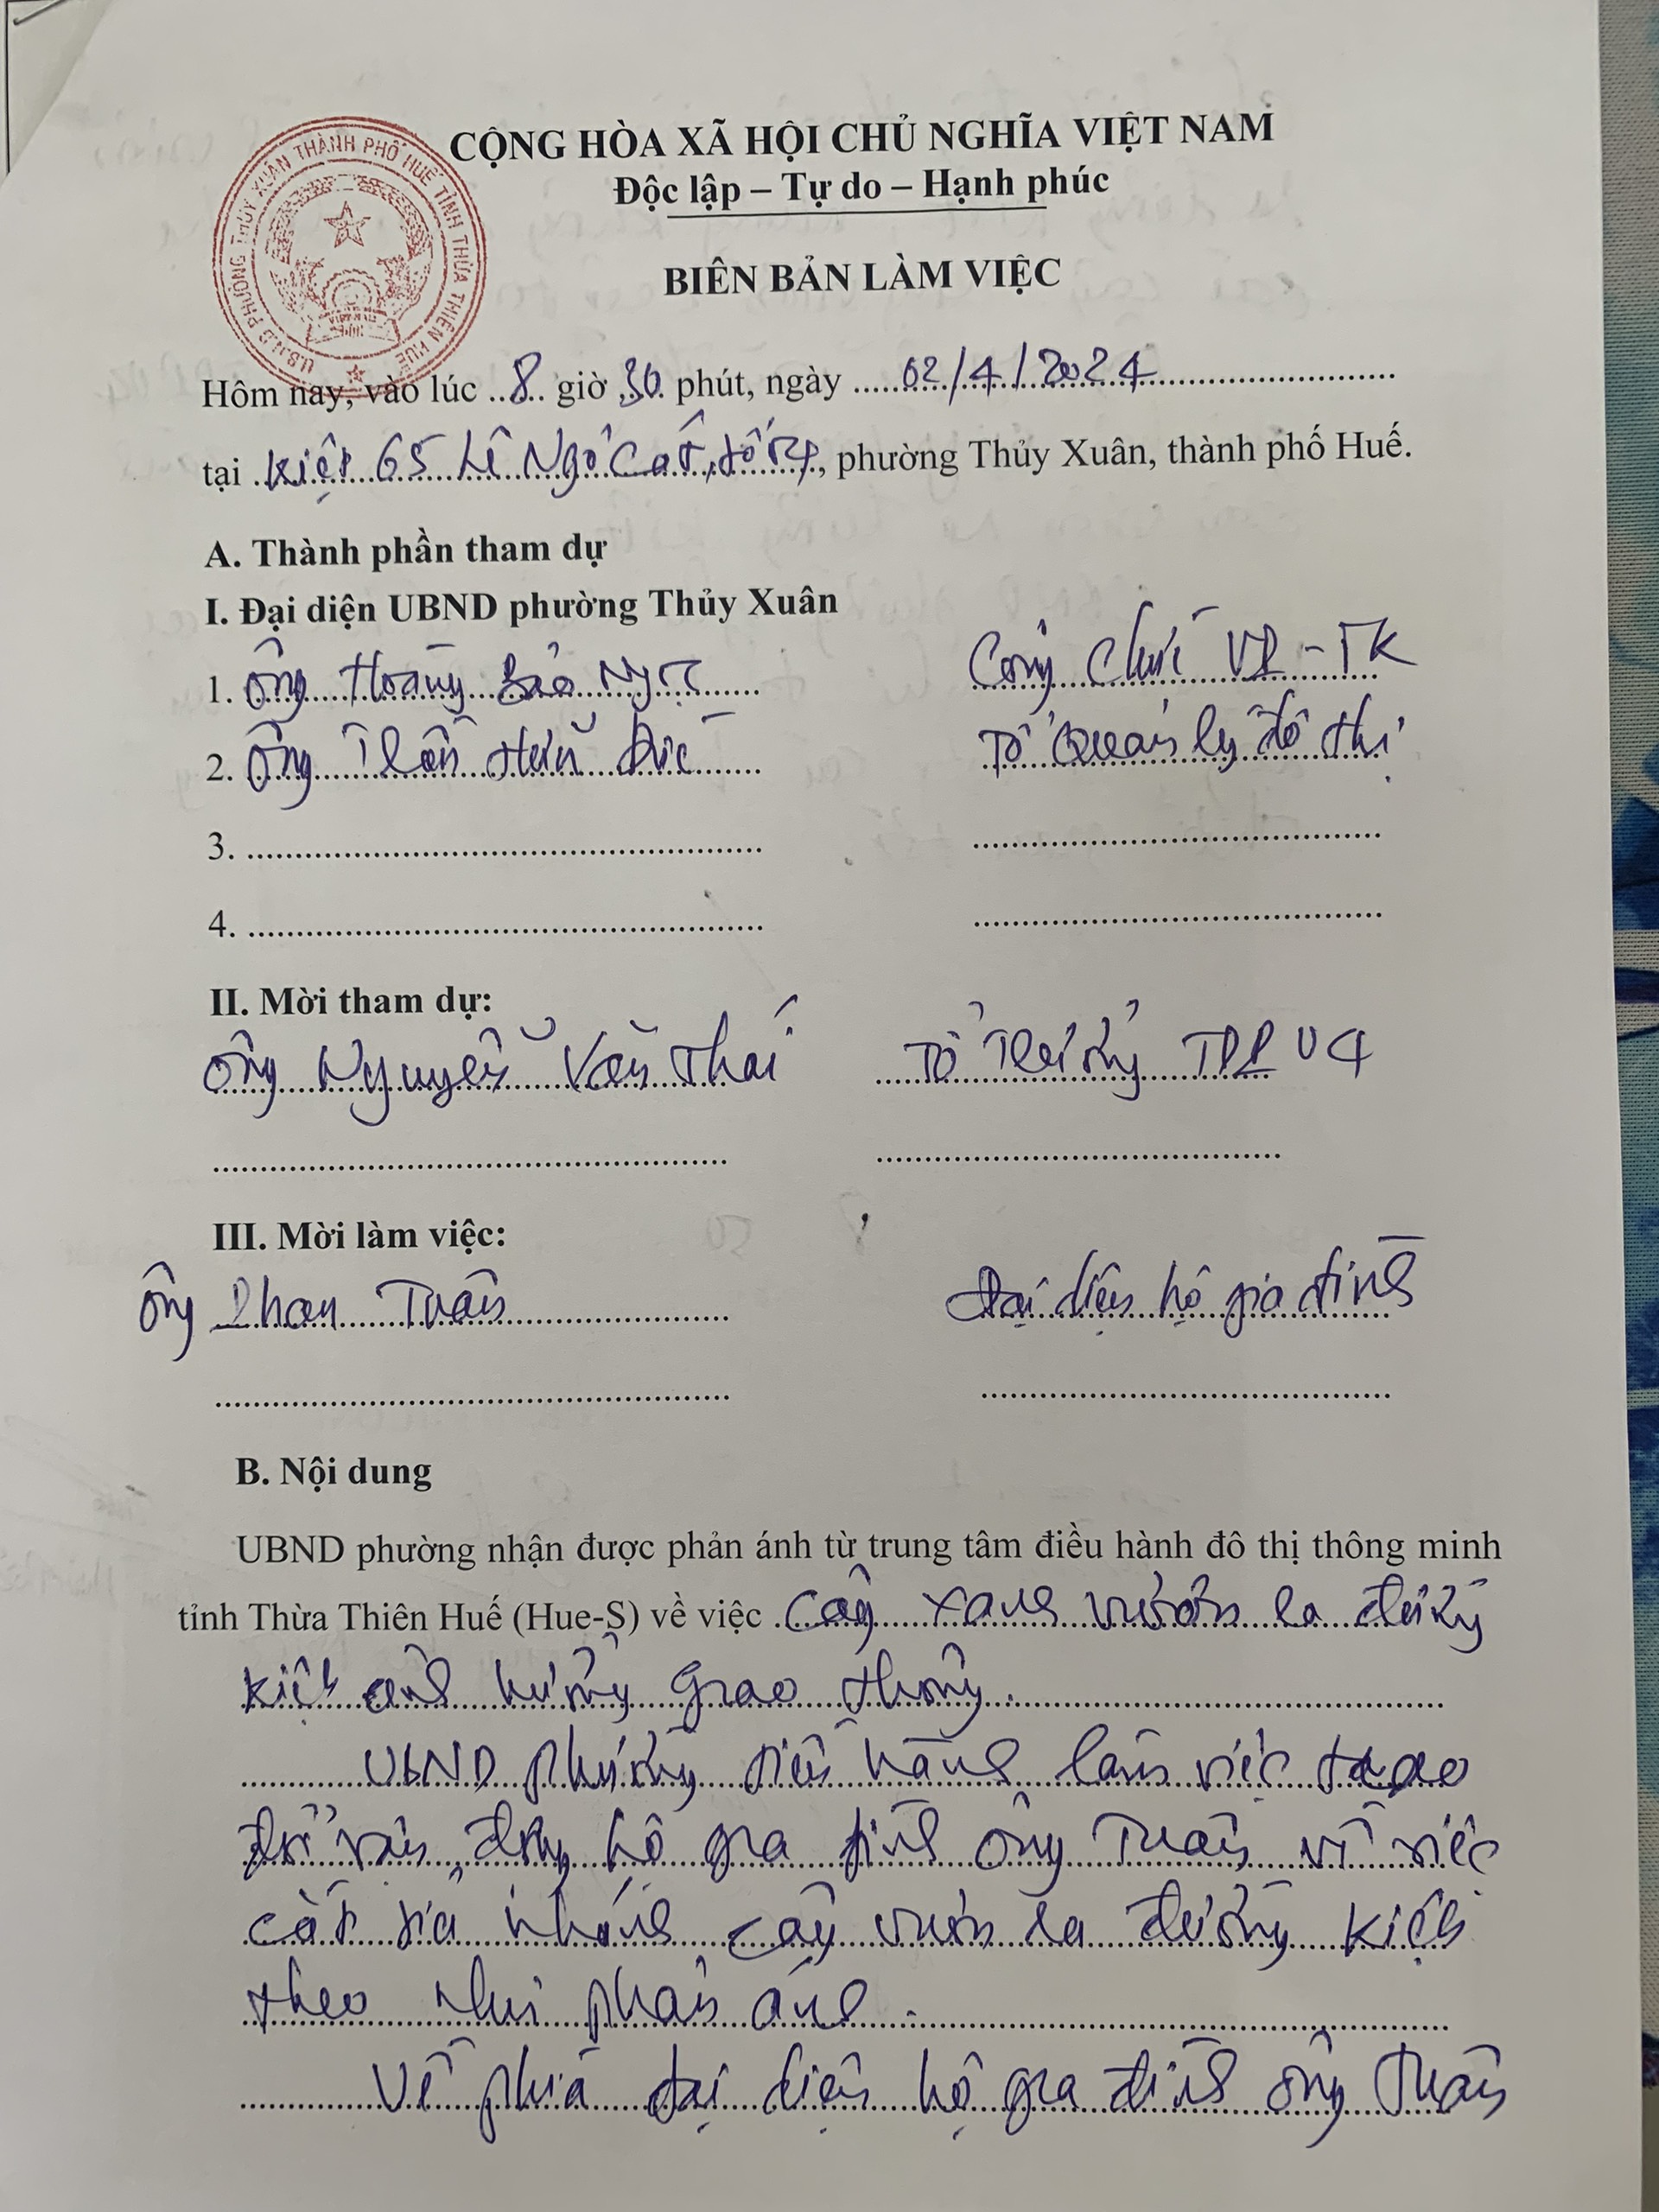 U.B.N.D PHƯỜNG THỦY XUÂN THÀNH PHỐ HUẾ TỈNH THỪA THIÊN HUẾ
CỘNG HÒA XÃ HỘI CHỦ NGHĨA VIỆT NAM
Độc lập – Tự do – Hạnh phúc
BIÊN BẢN LÀM VIỆC
Hôm nay, vào lúc ..8.. giờ .30 phút, ngày ..... 02/4/2024 ..........
tại .Kiệt 65 Lê Ngô Cát, tổ , phường Thủy Xuân, thành phố Huế.
A. Thành phần tham dự
I. Đại diện UBND phường Thủy Xuân
1. Ông Hoàng Bảo Công chức VP-TK
2. Ông Trần Hữu Đức Tổ Quản lý đô thị
3. ..........
4. ..........
II. Mời tham dự:
Ông Nguyễn Văn Thái Tổ Trưởng TDP 04
III. Mời làm việc:
Ông Phan Tuấn Đại diện hộ gia đình
B. Nội dung
UBND phường nhận được phản ánh từ trung tâm điều hành đô thị thông minh
tỉnh Thừa Thiên Huế (Hue-S) về việc . Cây xanh vươn ra đường
kiệt ảnh hưởng giao thông.
UBND phường tiến hành làm việc trao
đổi vận động hộ gia đình ông Tuấn về việc
cắt tỉa nhánh cây vươn ra đường kiệt
theo như phản ánh.
Về phía đại diện hộ gia đình ông Tuấn